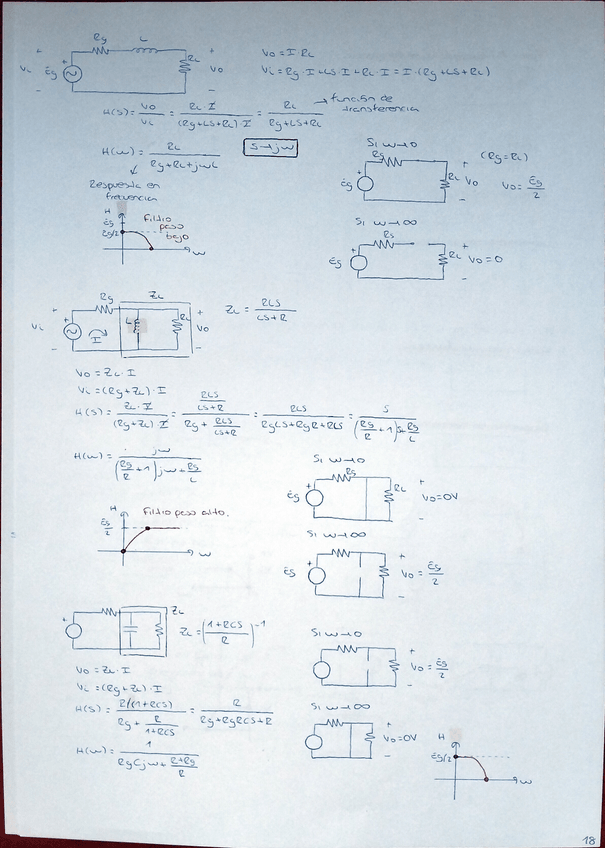 Rg L
+ + Vi Eg RL Vo - -
Vo = I·RL
Vi = Rg·I + LS·I + RL·I = I·(Rg+LS+RL)
H(S) = Vo/Vi = RL·I/((Rg+LS+RL)·I) = RL/(Rg+LS+RL) → función de transferencia
H(w) = RL/(Rg+RL+jwL)
S→jw
Respuesta en
frecuencia
Si w→0
Rg Eg RL + Vo - (Rg=RL) Vo = Eg/2
H
Eg
Rg/2
Filtro
paso
bajo
w
Si w→∞
Rg Eg RL + Vo=0 -
Rg ZL
+ + Vi I L RL Vo - -
ZL = RLS/(LS+R)
Vo = ZL·I
Vi = (Rg+ZL)·I
H(S) = ZL·I/((Rg+ZL)·I) = (RLS/(LS+R))/(Rg + RLS/(LS+R)) = RLS/(RgLS+RgR+RLS) = S/((Rg/R + 1)S+Rg/L)
H(w) = jw/((Rg/R + 1)jw + Rg/L)
Si w→0
Rg Eg RL + Vo=0V -
H
Eg/2
Filtro paso alto.
w
Si w→∞
Eg + Vo = Eg/2 -
ZL
ZL = ((1+RCS)/R)^-1
Vo = ZL·I
Vi = (Rg+ZL)·I
H(S) = (R/(1+RCS))/(Rg + R/(1+RCS)) = R/(Rg+RgRCS+R)
H(w) = 1/(RgCjw + (R+Rg)/R)
Si w→0
+ Vo = Eg/2 -
Si w→∞
+ Vo=0V -
H
Eg/2
w
18